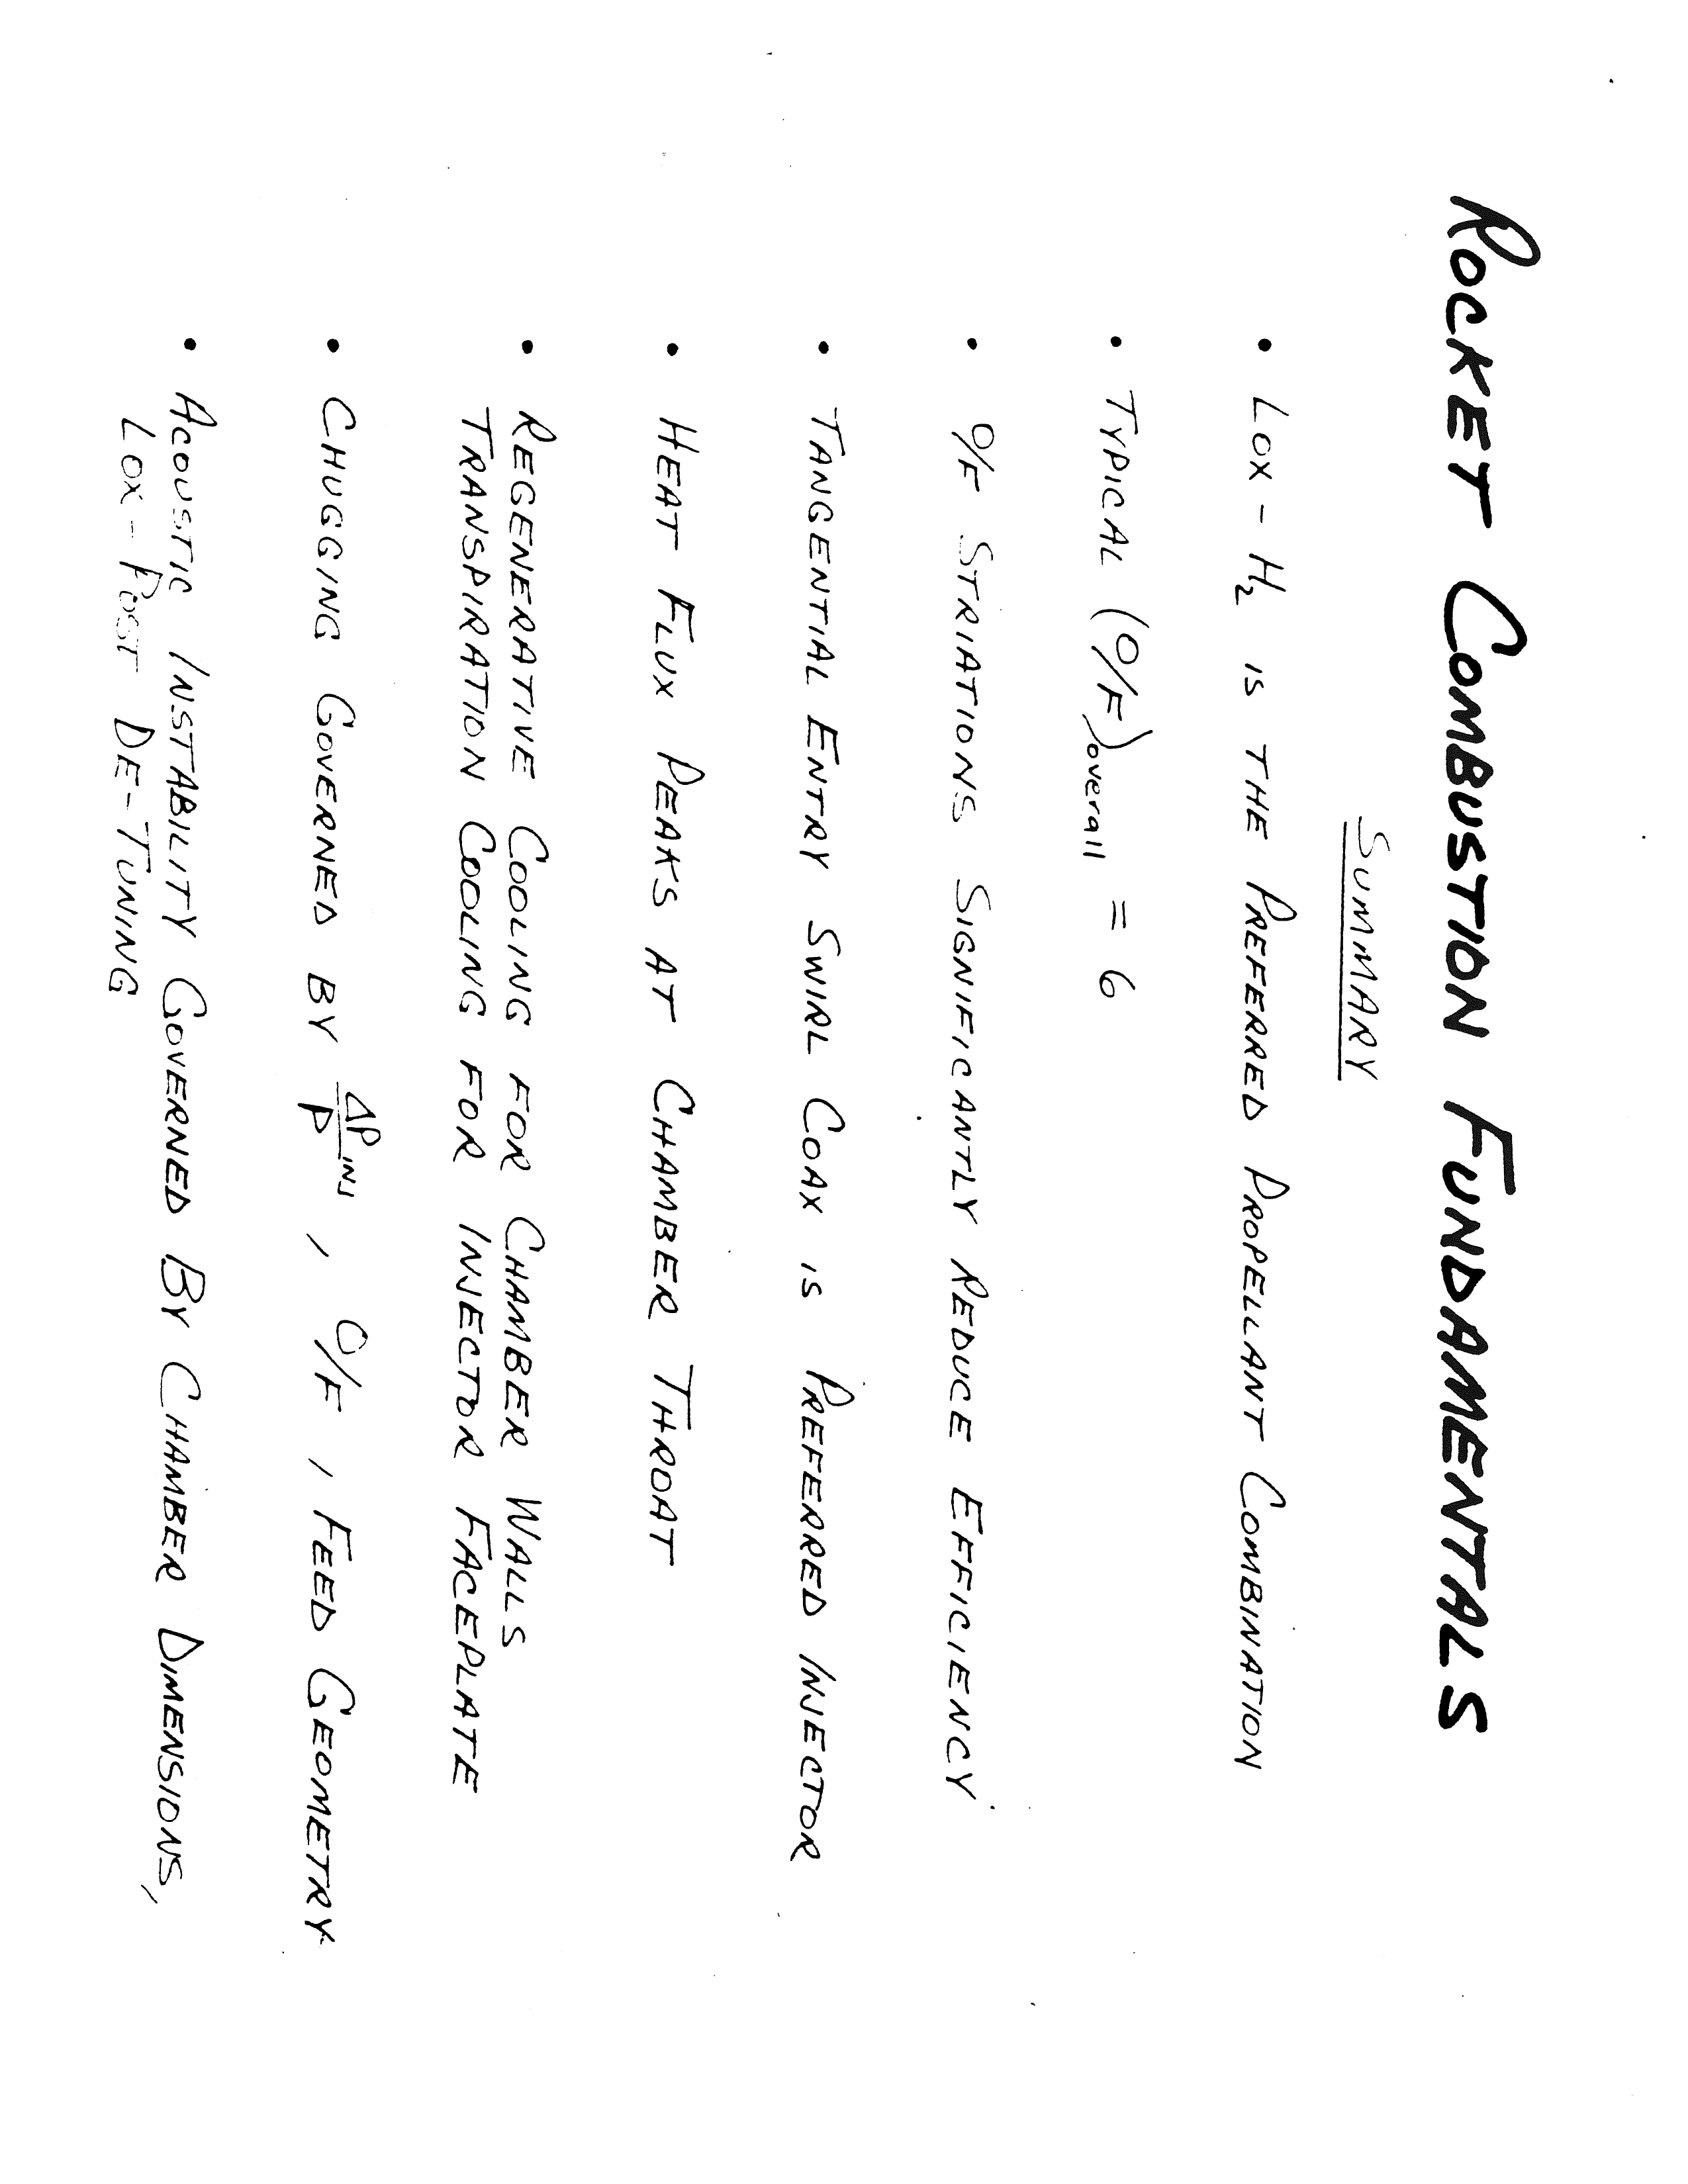 ROCKET COMBUSTION FUNDAMENTALS
SUMMARY
• LOX-H₂ IS THE PREFERRED PROPELLANT COMBINATION
• TYPICAL (O/F)overall = 6
• O/F STRIATIONS SIGNIFICANTLY REDUCE EFFICIENCY
• TANGENTIAL ENTRY SWIRL COAX IS PREFERRED INJECTOR
• HEAT FLUX PEAKS AT CHAMBER THROAT
• REGENERATIVE COOLING FOR CHAMBER WALLS
TRANSPIRATION COOLING FOR INJECTOR FACEPLATE
• CHUGGING GOVERNED BY ΔP/P INJ, O/F, FEED GEOMETRY
• ACOUSTIC INSTABILITY GOVERNED BY CHAMBER DIMENSIONS,
LOX-POST DE-TUNING